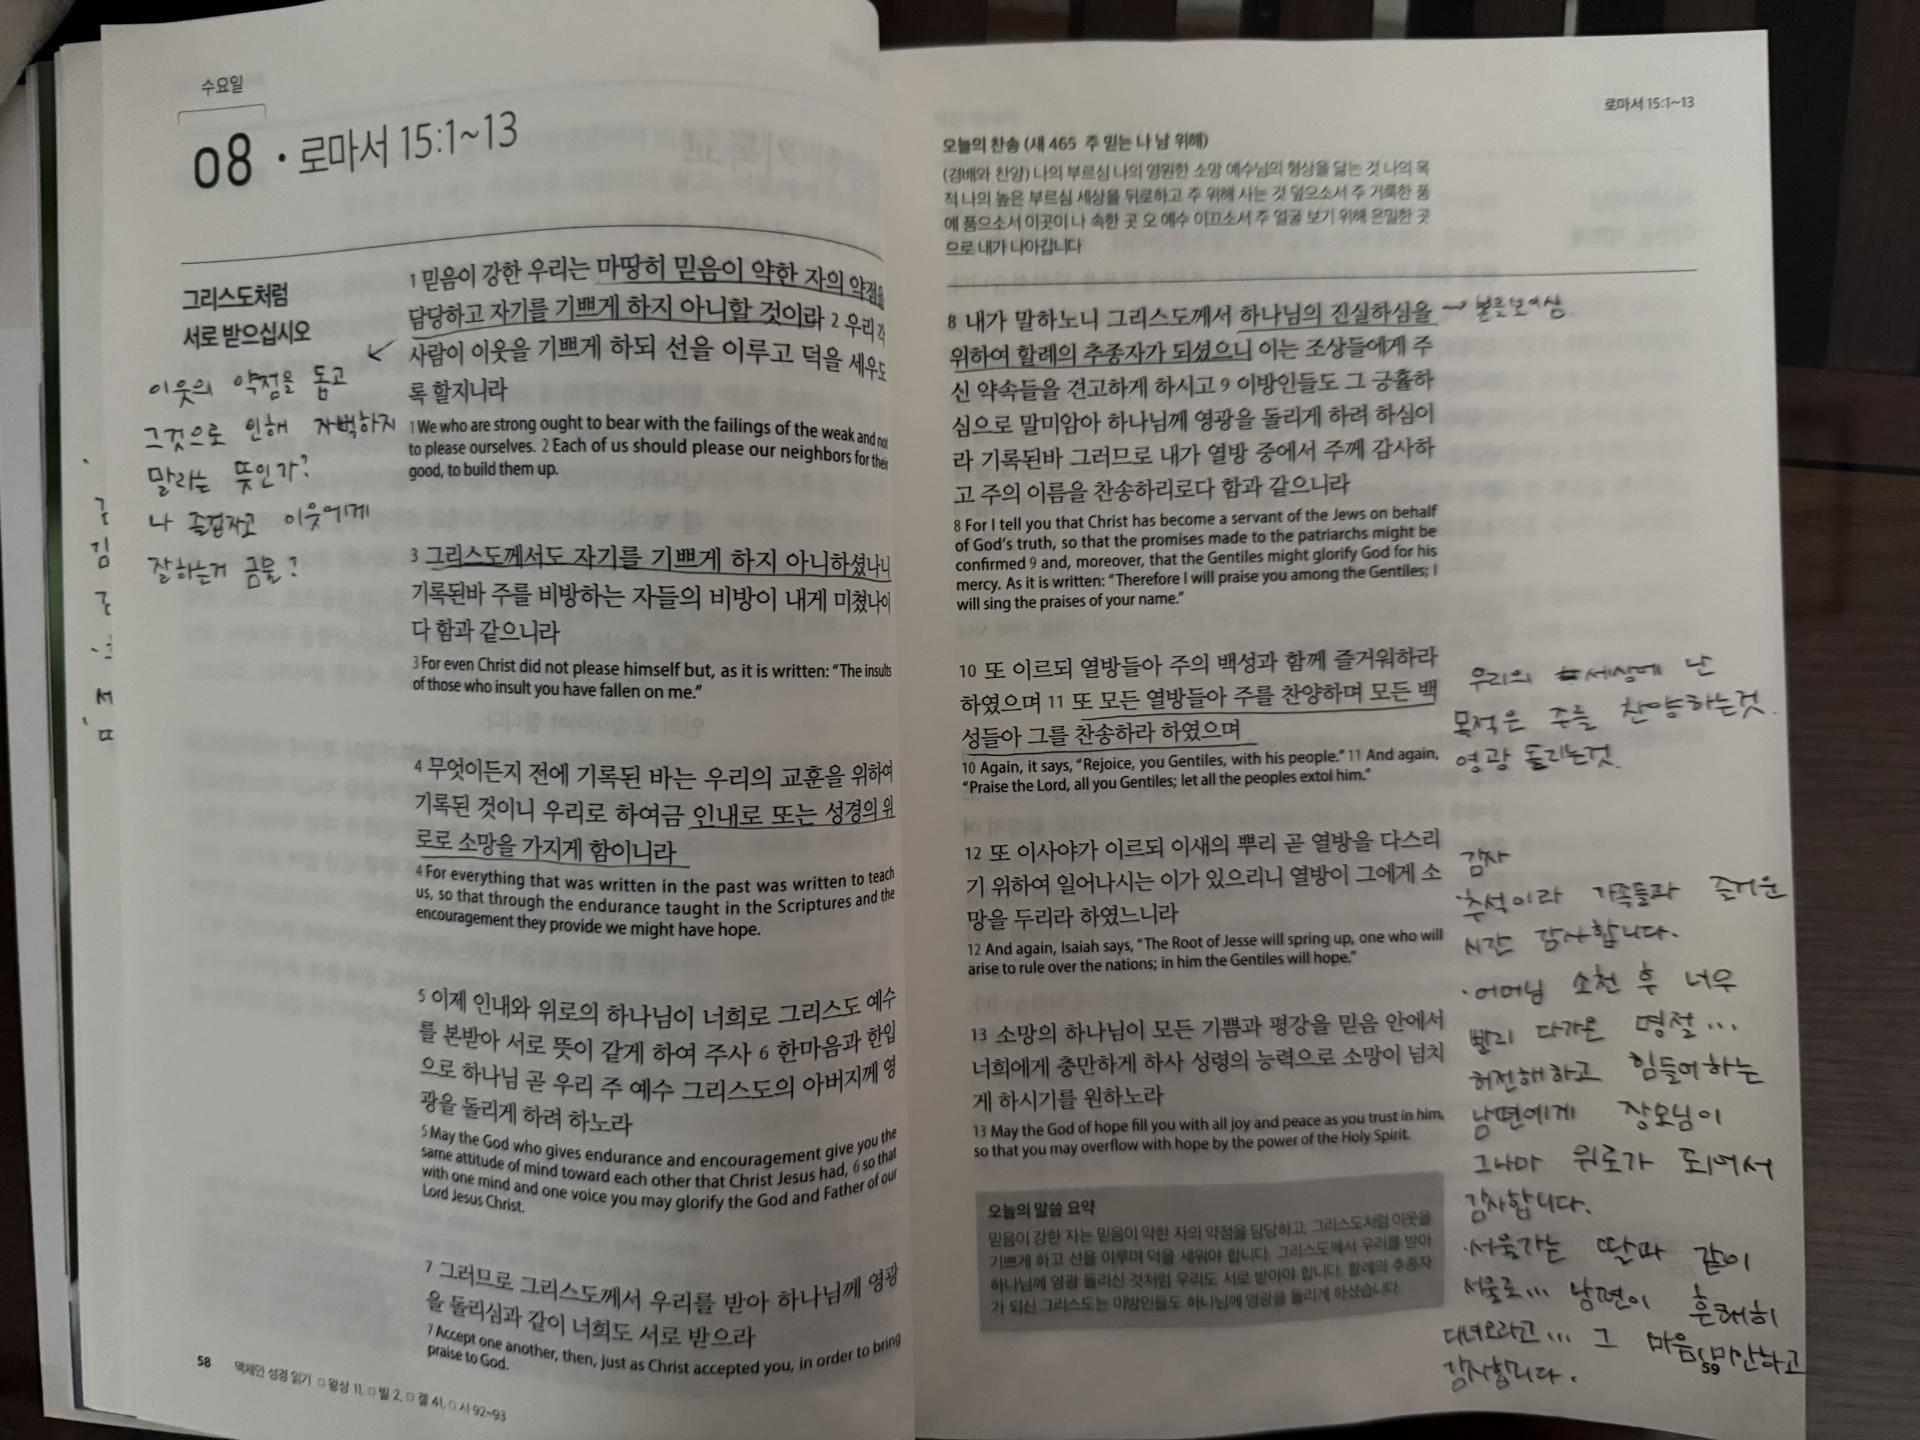 수요일
08 · 로마서 15:1~13
그리스도처럼
서로 받으십시오
이웃의 약점을 돕고
그것으로 인해 자백하지
말라는 뜻인가?
나 즐겁자고 이웃에게
잘하는거 금물?
1 믿음이 강한 우리는 마땅히 믿음이 약한 자의 약점을
담당하고 자기를 기쁘게 하지 아니할 것이라 2 우리 각
사람이 이웃을 기쁘게 하되 선을 이루고 덕을 세우도
록 할지니라
1 We who are strong ought to bear with the failings of the weak and not
to please ourselves. 2 Each of us should please our neighbors for their
good, to build them up.
3 그리스도께서도 자기를 기쁘게 하지 아니하셨나니
기록된바 주를 비방하는 자들의 비방이 내게 미쳤나이
다 함과 같으니라
3 For even Christ did not please himself but, as it is written: “The insults
of those who insult you have fallen on me.”
4 무엇이든지 전에 기록된 바는 우리의 교훈을 위하여
기록된 것이니 우리로 하여금 인내로 또는 성경의 위
로로 소망을 가지게 함이니라
4 For everything that was written in the past was written to teach
us, so that through the endurance taught in the Scriptures and the
encouragement they provide we might have hope.
5 이제 인내와 위로의 하나님이 너희로 그리스도 예수
를 본받아 서로 뜻이 같게 하여 주사 6 한마음과 한입
으로 하나님 곧 우리 주 예수 그리스도의 아버지께 영
광을 돌리게 하려 하노라
5 May the God who gives endurance and encouragement give you the
same attitude of mind toward each other that Christ Jesus had, 6 so that
with one mind and one voice you may glorify the God and Father of our
Lord Jesus Christ.
7 그러므로 그리스도께서 우리를 받아 하나님께 영광
을 돌리심과 같이 너희도 서로 받으라
7 Accept one another, then, just as Christ accepted you, in order to bring
praise to God.
58 맥체인 성경 읽기 □ 왕상 11, □ 빌 2, □ 겔 41, □ 시 92~93
로마서 15:1~13
오늘의 찬송 (새 465 주 믿는 나 남 위해)
(경배와 찬양) 나의 부르심 나의 영원한 소망 예수님의 형상을 닮는 것 나의 목
적 나의 높은 부르심 세상을 뒤로하고 주 위해 사는 것 덮으소서 주 거룩한 품
에 품으소서 이곳이 나 속한 곳 오 예수 이끄소서 주 얼굴 보기 위해 은밀한 곳
으로 내가 나아갑니다
8 내가 말하노니 그리스도께서 하나님의 진실하심을 → 본을보이심
위하여 할례의 추종자가 되셨으니 이는 조상들에게 주
신 약속들을 견고하게 하시고 9 이방인들도 그 긍휼하
심으로 말미암아 하나님께 영광을 돌리게 하려 하심이
라 기록된바 그러므로 내가 열방 중에서 주께 감사하
고 주의 이름을 찬송하리로다 함과 같으니라
8 For I tell you that Christ has become a servant of the Jews on behalf
of God’s truth, so that the promises made to the patriarchs might be
confirmed 9 and, moreover, that the Gentiles might glorify God for his
mercy. As it is written: “Therefore I will praise you among the Gentiles; I
will sing the praises of your name.”
10 또 이르되 열방들아 주의 백성과 함께 즐거워하라
하였으며 11 또 모든 열방들아 주를 찬양하며 모든 백
성들아 그를 찬송하라 하였으며
10 Again, it says, “Rejoice, you Gentiles, with his people.” 11 And again,
“Praise the Lord, all you Gentiles; let all the peoples extol him.”
우리의 세상에 난
목적은 주를 찬양하는것.
영광 돌리는것.
12 또 이사야가 이르되 이새의 뿌리 곧 열방을 다스리
기 위하여 일어나시는 이가 있으리니 열방이 그에게 소
망을 두리라 하였느니라
12 And again, Isaiah says, “The Root of Jesse will spring up, one who will
arise to rule over the nations; in him the Gentiles will hope.”
13 소망의 하나님이 모든 기쁨과 평강을 믿음 안에서
너희에게 충만하게 하사 성령의 능력으로 소망이 넘치
게 하시기를 원하노라
13 May the God of hope fill you with all joy and peace as you trust in him,
so that you may overflow with hope by the power of the Holy Spirit.
오늘의 말씀 요약
믿음이 강한 자는 믿음이 약한 자의 약점을 담당하고, 그리스도처럼 이웃을
기쁘게 하고 선을 이루며 덕을 세워야 합니다. 그리스도께서 우리를 받아
하나님께 영광 돌리신 것처럼 우리도 서로 받아야 합니다. 할례의 추종자
가 되신 그리스도는 이방인들도 하나님께 영광을 돌리게 하셨습니다.
감사
·추석이라 가족들과 즐거운
시간 감사합니다.
·어머님 소천 후 너무
빨리 다가온 명절...
허전해하고 힘들어하는
남편에게 장모님이
그나마 위로가 되어서
감사합니다.
·서울가는 딸과 같이
서울로... 남편이 흔쾌히
다녀오라고... 그 마음 미안하고
감사합니다.
59